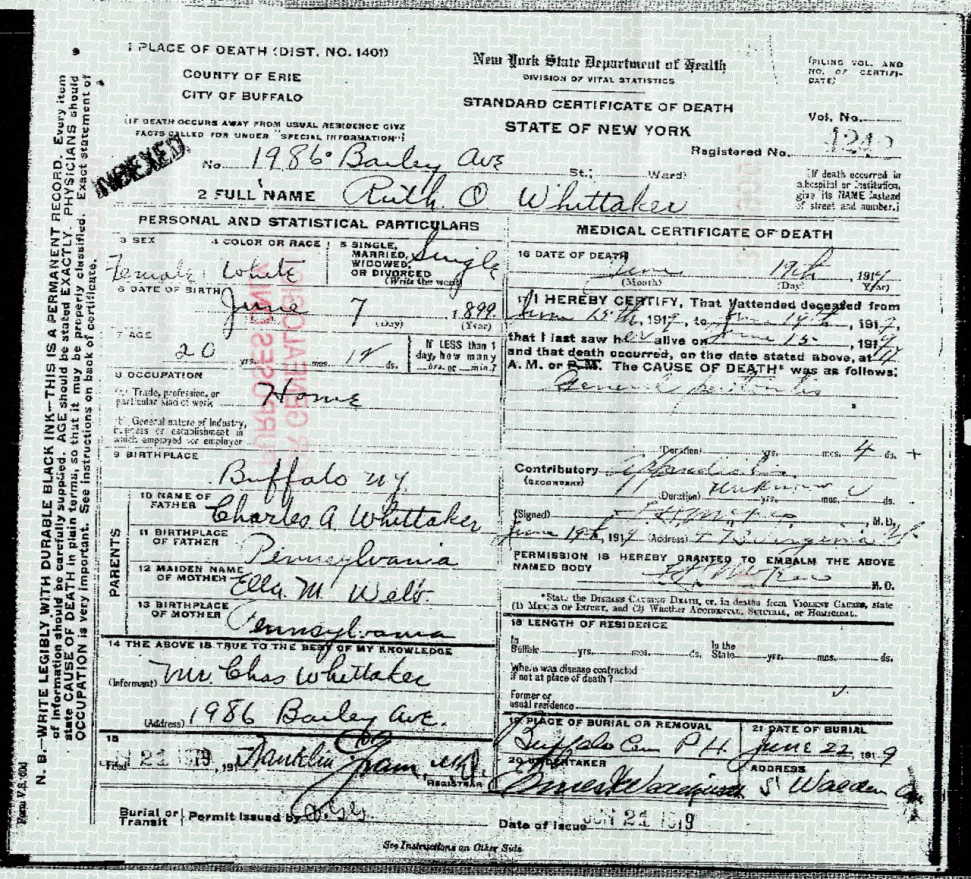 1 PLACE OF DEATH (DIST. NO. 1401)
COUNTY OF ERIE
CITY OF BUFFALO
(IF DEATH OCCURS AWAY FROM USUAL RESIDENCE GIVE
FACTS CALLED FOR UNDER "SPECIAL INFORMATION")
New York State Department of Health
DIVISION OF VITAL STATISTICS
STANDARD CERTIFICATE OF DEATH
STATE OF NEW YORK
(FILING VOL. AND
NO. OF CERTIFI-
CATE)
Vol. No.
Registered No. 1242
INDEXED
No. 1986 Bailey Ave St.; Ward)
(If death occurred in
a hospital or institution,
give its NAME instead
of street and number.)
2 FULL NAME Ruth O Whittaker
PERSONAL AND STATISTICAL PARTICULARS
3 SEX Female
4 COLOR OR RACE White
5 SINGLE,
MARRIED,
WIDOWED,
OR DIVORCED
(Write the word)
Single
6 DATE OF BIRTH
June 7 1899
(Day) (Year)
7 AGE
20 yrs. mos. 12 ds.
If LESS than 1
day, how many
hrs. or min.?
8 OCCUPATION
(a) Trade, profession, or
particular kind of work
Home
(b) General nature of Industry,
business or establishment in
which employed (or employer
9 BIRTHPLACE
Buffalo NY.
PARENTS
10 NAME OF
FATHER
Charles A Whittaker
11 BIRTHPLACE
OF FATHER
Pennsylvania
12 MAIDEN NAME
OF MOTHER
Ella M
13 BIRTHPLACE
OF MOTHER
Pennsylvania
14 THE ABOVE IS TRUE TO THE BEST OF MY KNOWLEDGE
(Informant) Mr. Chas Whittaker
(Address) 1986 Bailey Ave.
15
Filed 21 1919, 191 Franklin Gram
REGISTRAR
Burial or
Transit
Permit Issued by
MEDICAL CERTIFICATE OF DEATH
16 DATE OF DEATH
June 19th, 1919
(Month) (Day) (Year)
17 I HEREBY CERTIFY, That I attended deceased from
June 15th, 1919, to June 19th, 1919,
that I last saw her alive on June 15, 1919
and that death occurred, on the date stated above, at
A. M. or P. M. The CAUSE OF DEATH* was as follows:
General peritonitis
(Duration) yrs. mos. 4 ds.
Contributory
(SECONDARY)
(Duration) unknown yrs. mos. ds.
(Signed) M.D.
June 19th, 1919 (Address) Virginia St
PERMISSION IS HEREBY GRANTED TO EMBALM THE ABOVE
NAMED BODY
M.D.
*State the DISEASE CAUSING DEATH, or, in deaths from VIOLENT CAUSES, state
(1) MEANS OF INJURY, and (2) Whether ACCIDENTAL, SUICIDAL, or HOMICIDAL.
18 LENGTH OF RESIDENCE
In
Buffalo yrs. mos. ds.
In the
State yrs. mos. ds.
Where was disease contracted
if not at place of death?
Former or
usual residence
19 PLACE OF BURIAL OR REMOVAL
Buffalo Cem P H.
21 DATE OF BURIAL
June 22 1919
20 UNDERTAKER
ADDRESS
Walden
Date of Issue JUN 21 1919
See Instructions on Other Side
N. B.—WRITE LEGIBLY WITH DURABLE BLACK INK—THIS IS A PERMANENT RECORD. Every item
of information should be carefully supplied. AGE should be stated EXACTLY. PHYSICIANS should
state CAUSE OF DEATH in plain terms, so that it may be properly classified. Exact statement of
OCCUPATION is very important. See instructions on back of certificate.
Form V.S. 60d